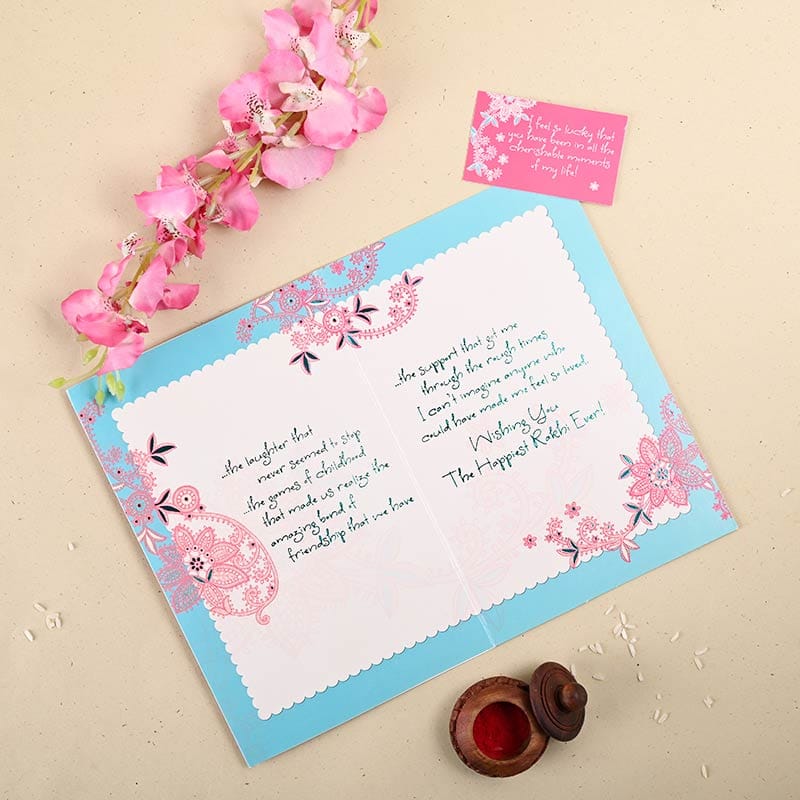 I feel so lucky that
you have been in all the
cherishable moments
of my life!
...the laughter that
never seemed to stop
...the games of childhood
that made us realize the
amazing bond of
friendship that we have
...the support that got me
through the rough times
I can't imagine anyone who
could have made me feel so loved.
Wishing You
The Happiest Rakhi Ever!